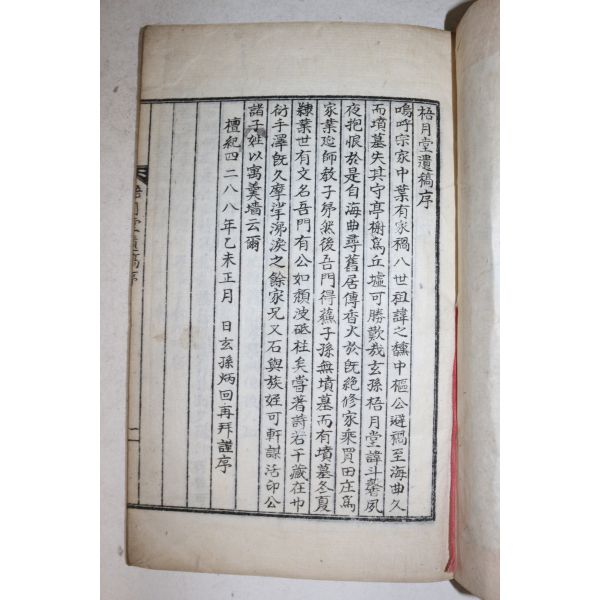 梧月堂遺稿序
嗚呼宗家中葉有家禍八世祖諱之馥中樞公避禍至海曲久
而墳墓失其守亭榭爲丘墟可勝歎哉玄孫梧月堂諱斗馨夙
夜抱恨於是自海曲尋舊居傳香火於旣絶修家乘買田庄爲
家業迎師敎子弟然後吾門得蕪子孫無墳墓而有墳墓冬夏
隷業世有文名吾門有公如頹波砥柱矣嘗著詩若干藏在巾
衍手澤旣久摩挲涕淚之餘家兄又石與族姪可軒謀活印公
諸子姓以寓羹墻云爾
檀紀四二八八年乙未正月 日玄孫炳回再拜謹序
梧月堂遺稿序
一